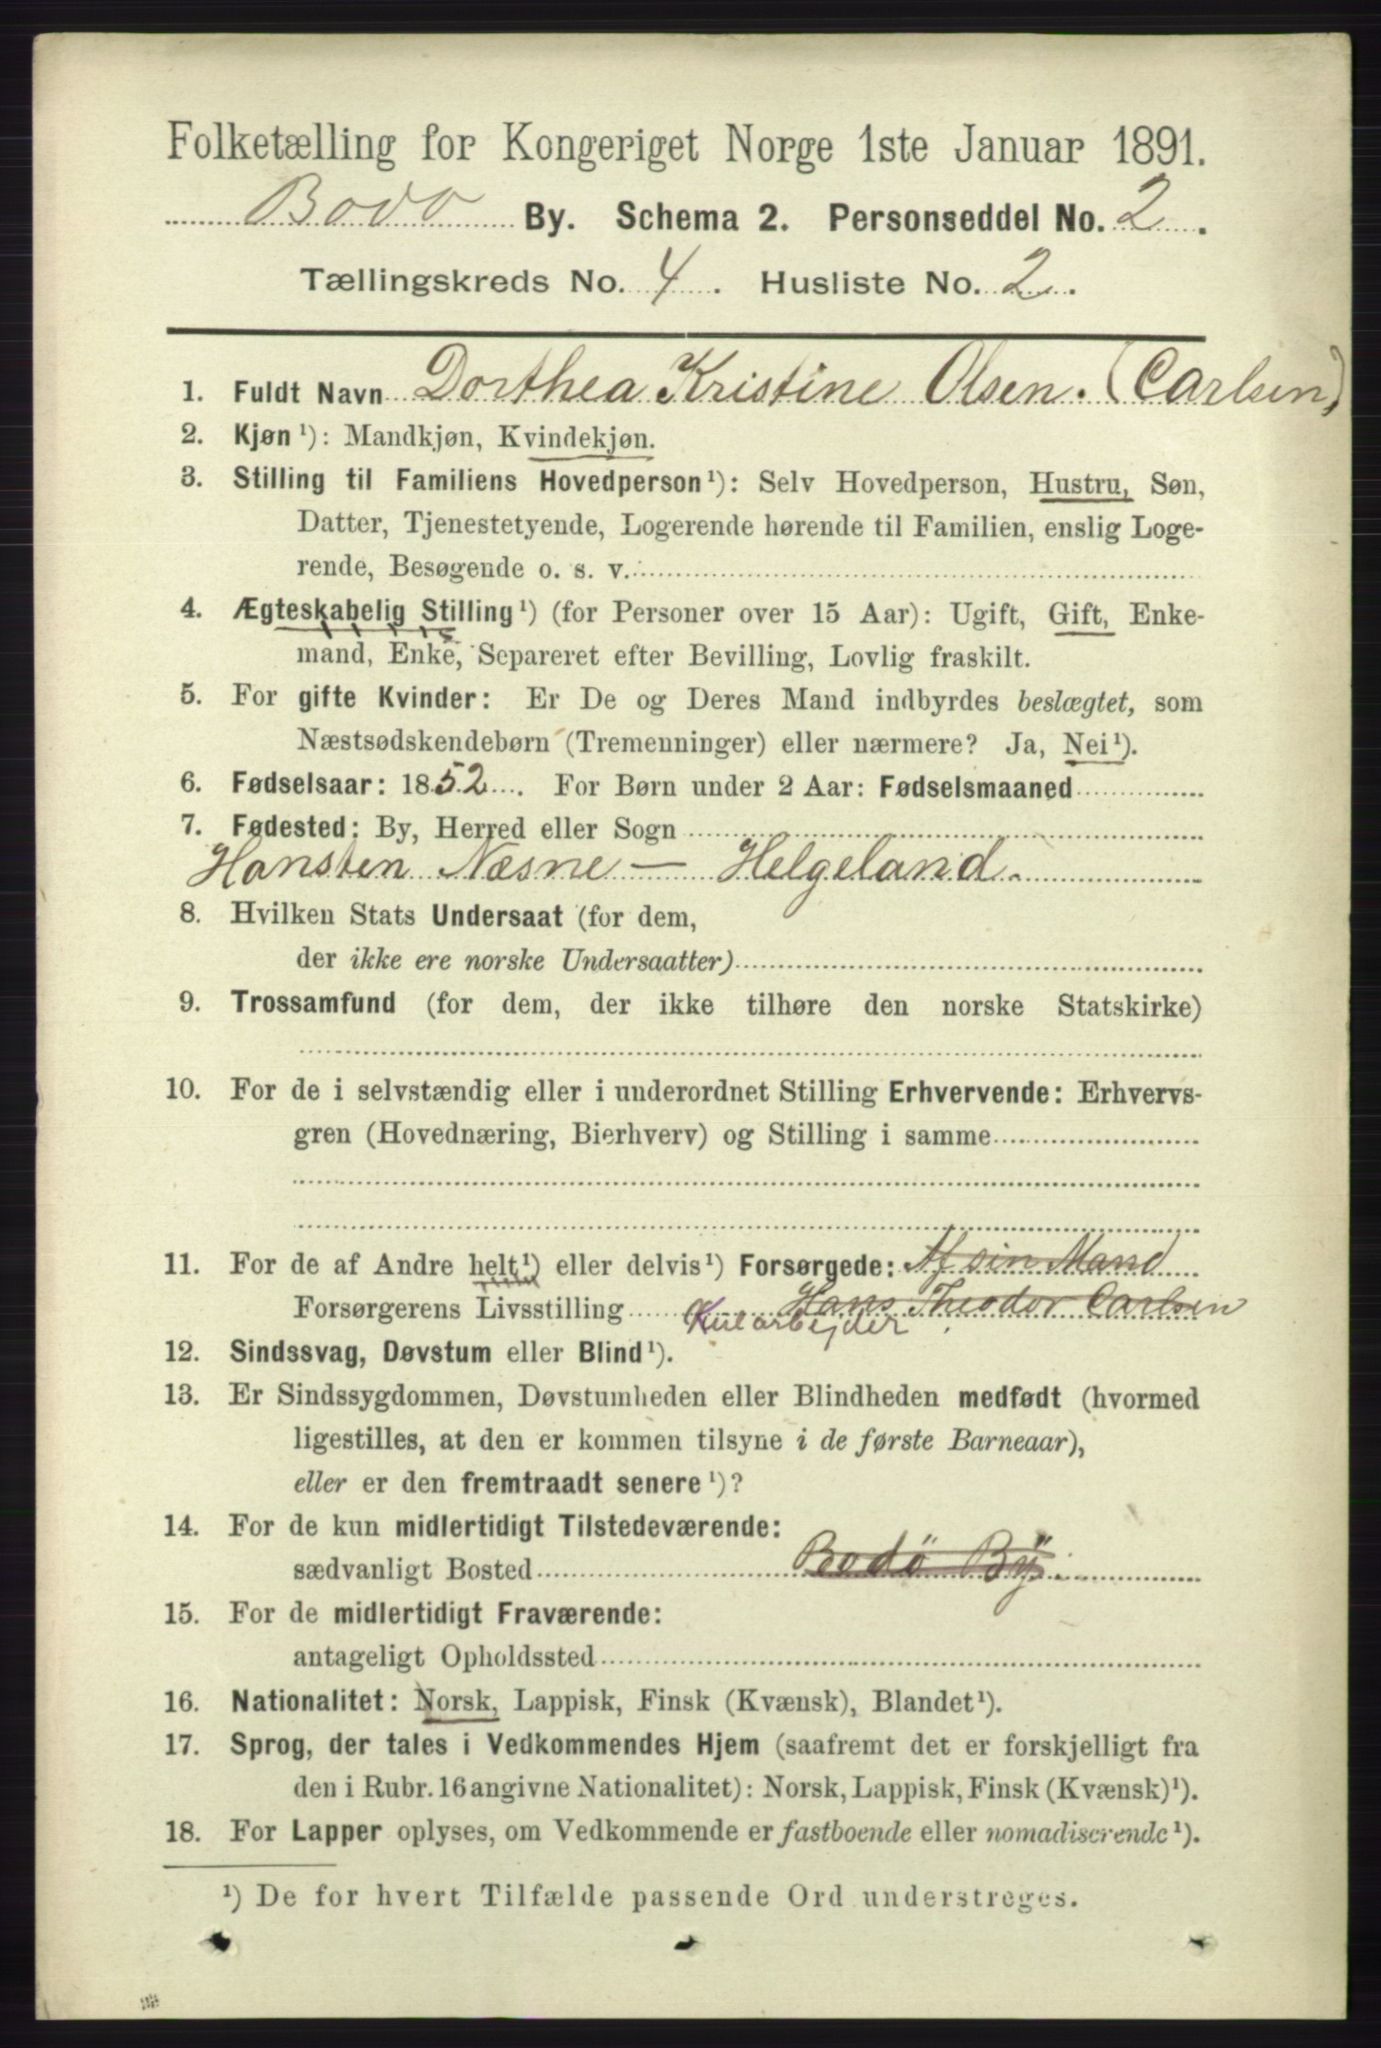 Folketælling for Kongeriget Norge 1ste Januar 1891.
Bodo By. Schema 2. Personseddel No. 2.
Tællingskreds No. 4. Husliste No. 2.
1. Fuldt Navn Dorthea Kristine Olsen. (Carlsen)
2. Kjøn ¹): Mandkjøn, Kvindekjøn.
3. Stilling til Familiens Hovedperson ¹): Selv Hovedperson, Hustru, Søn,
Datter, Tjenestetyende, Logerende hørende til Familien, enslig Loge-
rende, Besøgende o. s. v.
4. Ægteskabelig Stilling ¹) (for Personer over 15 Aar): Ugift, Gift, Enke-
mand, Enke, Separeret efter Bevilling, Lovlig fraskilt.
5. For gifte Kvinder: Er De og Deres Mand indbyrdes beslægtet, som
Næstsødskendebørn (Tremenninger) eller nærmere? Ja, Nei ¹).
6. Fødselsaar: 1852. For Børn under 2 Aar: Fødselsmaaned
7. Fødested: By, Herred eller Sogn
Næsne — Helgeland.
8. Hvilken Stats Undersaat (for dem,
der ikke ere norske Undersaatter)
9. Trossamfund (for dem, der ikke tilhøre den norske Statskirke)
10. For de i selvstændig eller i underordnet Stilling Erhvervende: Erhvervs-
gren (Hovednæring, Bierhverv) og Stilling i samme
11. For de af Andre helt ¹) eller delvis ¹) Forsørgede: Af sin Mand
Forsørgerens Livsstilling Hans Theodor Carlsen
Kularbejder
12. Sindssvag, Døvstum eller Blind ¹).
13. Er Sindssygdommen, Døvstumheden eller Blindheden medfødt (hvormed
ligestilles, at den er kommen tilsyne i de første Barneaar),
eller er den fremtraadt senere ¹)?
14. For de kun midlertidigt Tilstedeværende:
sædvanligt Bosted Bodö By
15. For de midlertidigt Fraværende:
antageligt Opholdssted
16. Nationalitet: Norsk, Lappisk, Finsk (Kvænsk), Blandet ¹).
17. Sprog, der tales i Vedkommendes Hjem (saafremt det er forskjelligt fra
den i Rubr. 16 angivne Nationalitet): Norsk, Lappisk, Finsk (Kvænsk) ¹).
18. For Lapper oplyses, om Vedkommende er fastboende eller nomadiserende ¹).
¹) De for hvert Tilfælde passende Ord understreges.